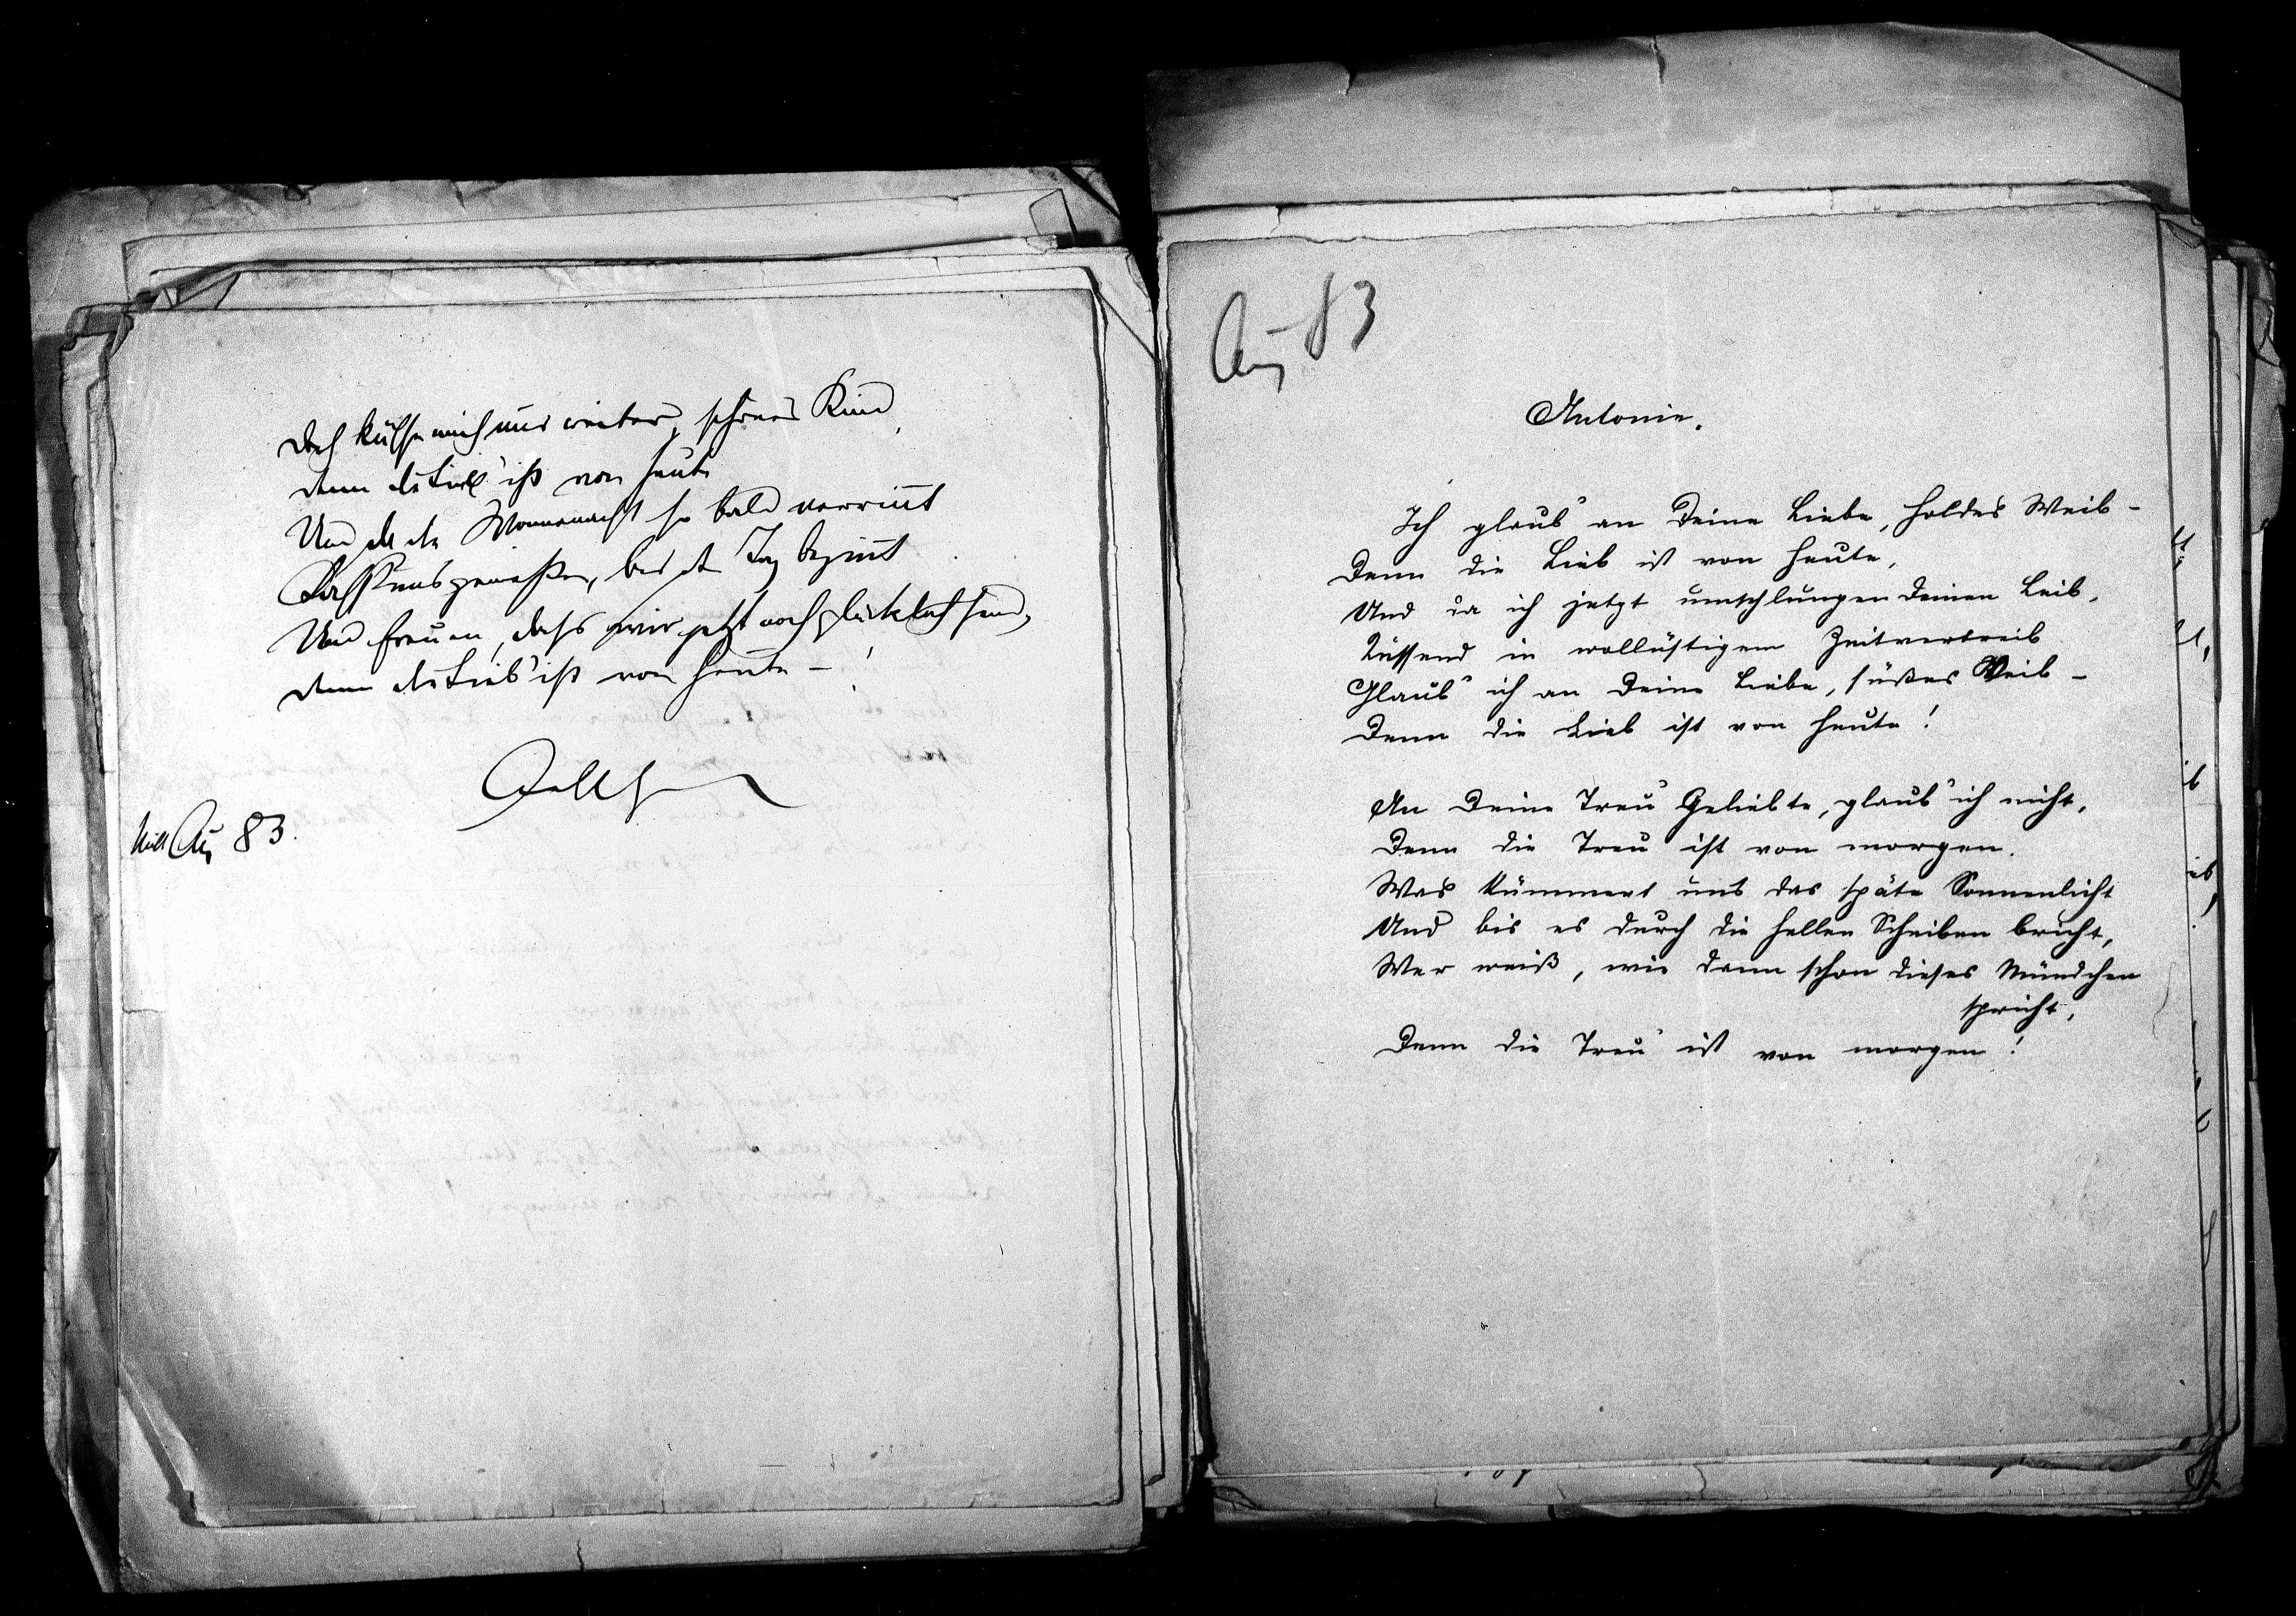 Doch küsse mich nur weiter, schönes Kind,
Denn die Lieb' ist von heute
Und da die Wonnenacht so bald verrinnt
Lass uns genießen, bis der Tag beginnt
Und freuen, dass wir jetzt noch glücklich sind,
Denn die Lieb' ist von heute – !
Aug 83.
Aug 83
Antonie.
Ich glaub' an Deine Liebe, holdes Weib –
Denn die Lieb ist von heute,
Und da ich jetzt umschlungen Deinen Leib,
Küssend in wollüstigem Zeitvertreib
Glaub' ich an Deine Liebe, süßes Weib –
Denn die Lieb ist von heute!
An Deine Treu' Geliebte, glaub' ich nicht,
Denn die Treu' ist von morgen.
Was kümmert uns das späte Sonnenlicht
Und bis es durch die hellen Scheiben bricht,
Wer weiß, wie dann schon dieses Mündchen
spricht,
Denn die Treu' ist von morgen!